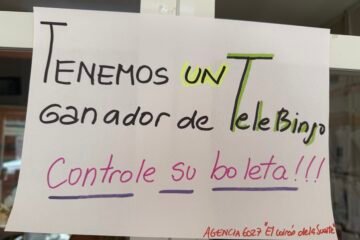 TENEMOS UN
GANADOR de TeleBingo
Controle su boleta!!!
AGENCIA 6027 "El corrón de la Suerte"